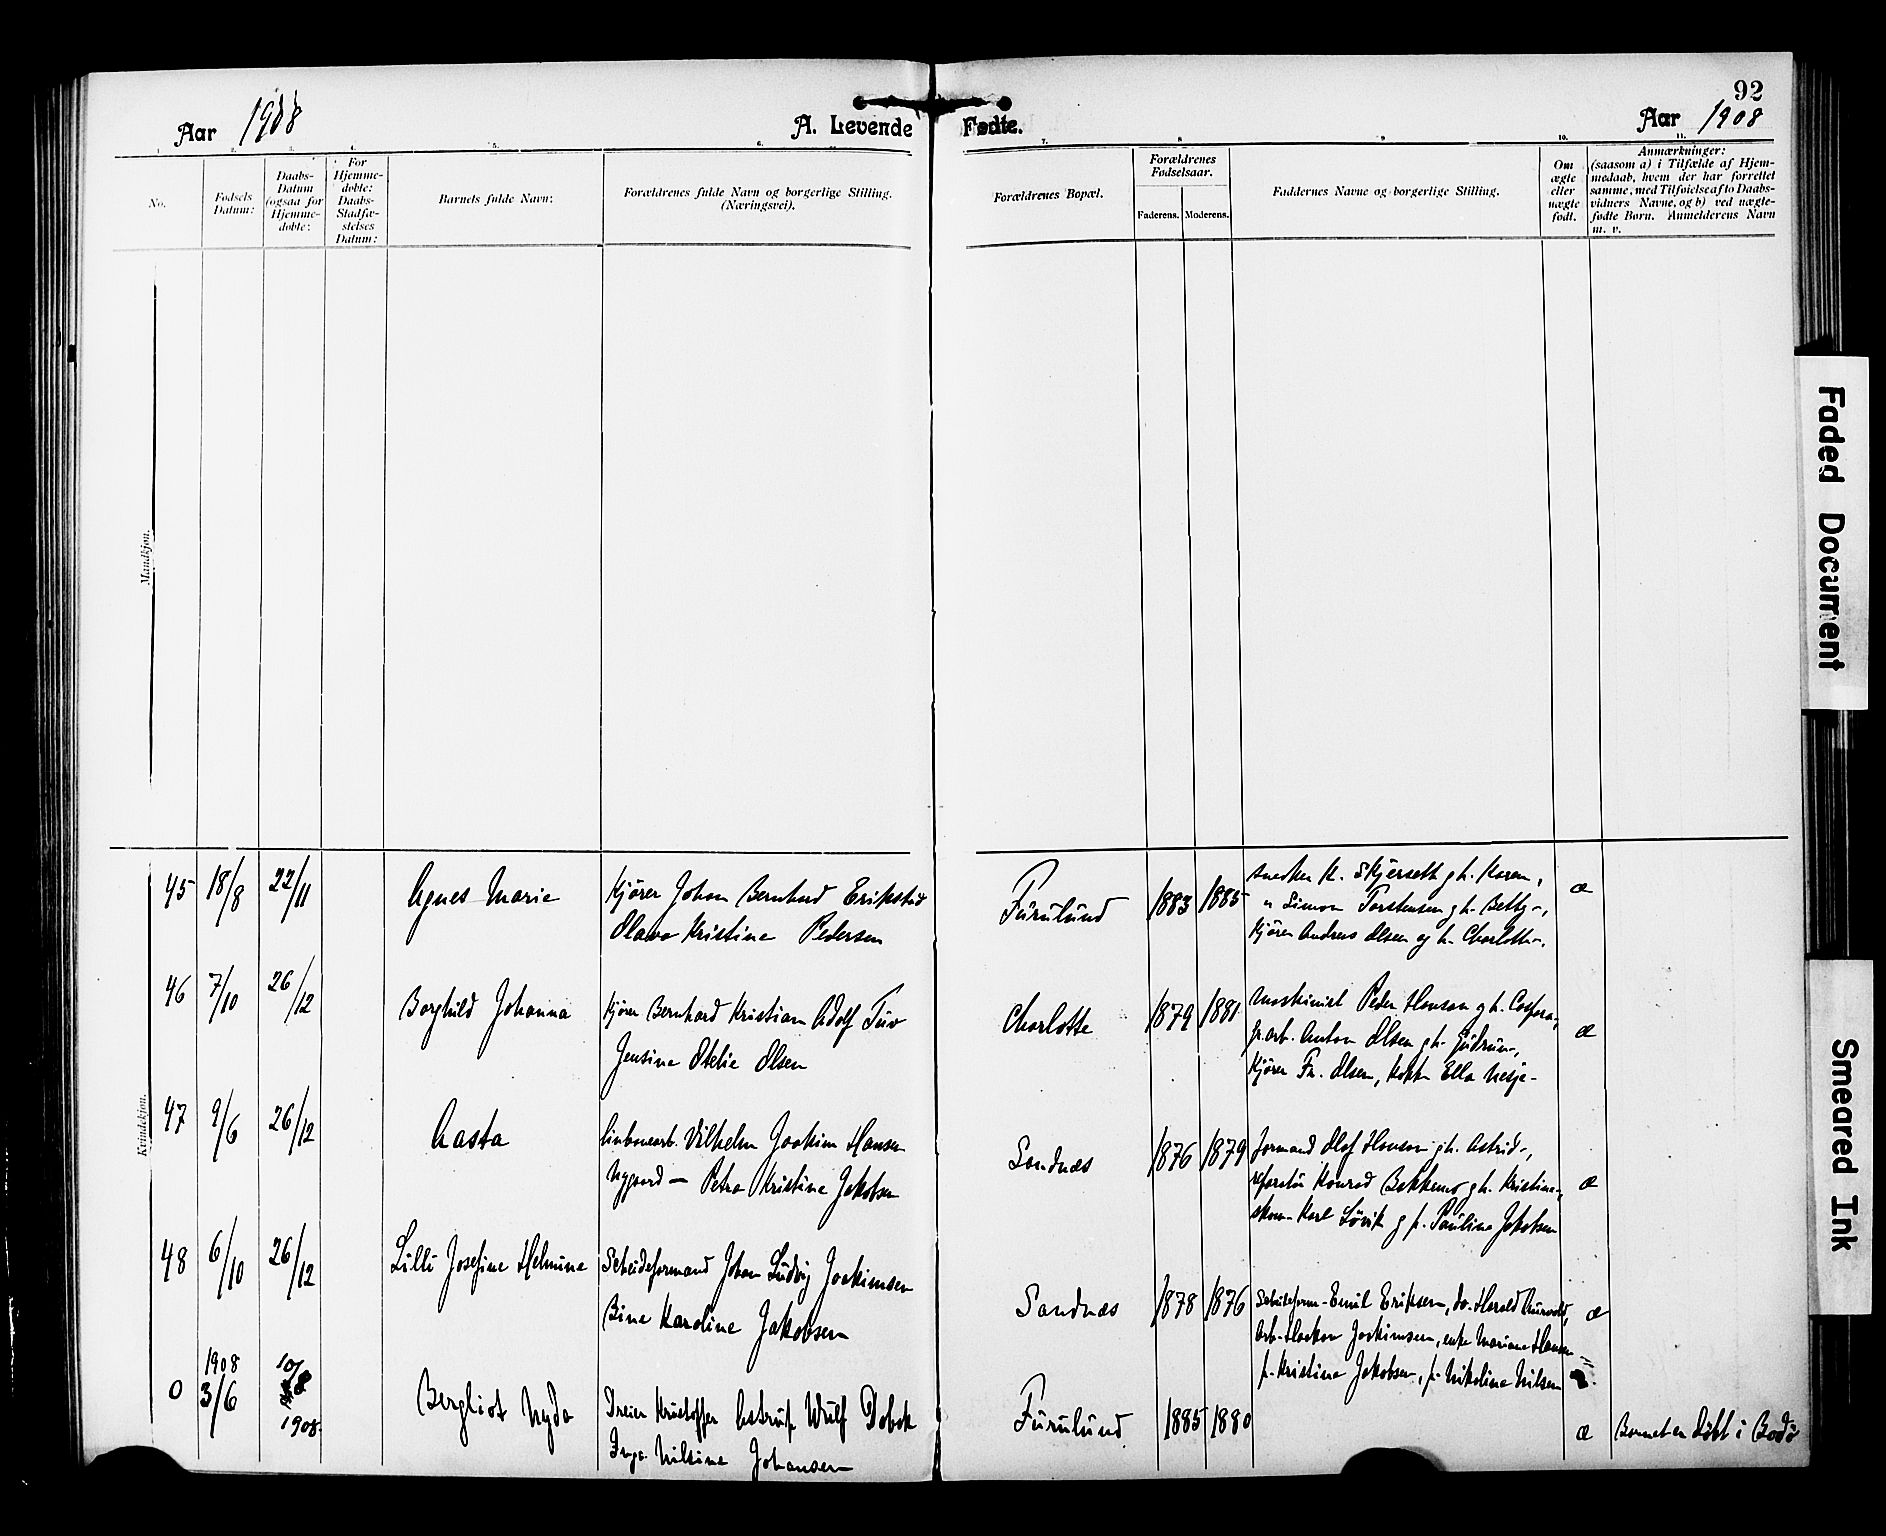 92
Aar 1908
A. Levende Fødte.
Aar 1908
1. 2. 3. 4. 5. 6. 7. 8. 9. 10. 11.
No.
Fødsels
Datum:
Daabs-
Datum
(ogsaa for
Hjemme-
døbte:
For
Hjemme-
døbte:
Daabs-
Stadfæ-
stelses
Datum:
Barnets fulde Navn:
Forældrenes fulde Navn og borgerlige Stilling.
(Næringsvei).
Forældrenes Bopæl.
Forældrenes
Fødselsaar.
Faderens. Moderens.
Faddernes Navne og borgerlige Stilling.
Om
ægte
eller
uægte
født.
Anmærkninger:
(saasom a) i Tilfælde af Hjem-
medaab, hvem der har forrettet
samme, med Tilføielse af to Daabs-
vidners Navne, og b) ved uægte-
fødte Børn. Anmelderens Navn
m. v.
Mandkjøn.
Kvindekjøn.
45 18/8 22/11 Agnes Marie
Kjører Johan Bernhard Erikstad
Olava Kristine Pedersen
Furulund 1883 1885
snedker K. Skjerseth g h. Karen,
" Simon Torstensen g h. Betty-,
Kjører Andreas Olsen og h. Charlotte-.
æ
46 7/10 26/12 Borghild Johanna
Kjører Bernhard Kristian Adolf Tuv
Jensine Otelie Olsen
Charlotta 1879 1881
Maskinist Peder Hansen g h.
gr.arb. Anton Olsen g h. Gudrun-,
Kjører Fr. Olsen, Ella Nesje-
æ
47 9/6 26/12 Aasta
Vilhelm Joakim Hansen
Nygaard — Petra Kristine Jakobsen
Sandnæs 1876 1879
formand Olaf Hansen g h. Astrid-,
Konrad Bekkemo g h. Kristine-,
skom- Karl Løvik g p. Pauline Jakobsen
æ
48 6/10 26/12 Lilli Josefine Helmine
Scheideformand Johan Ludvig Joakimsen
Bine Karoline Jakobsen
Sandnæs 1878 1876
Scheideform- Emil Eriksen, do. Harald
Arb- Haakon Joakimsen, enke Mariane Hansen
p. Kristine Jakobsen, p. Nikoline Nilsen
æ
0 1908 3/6 10/8 1908. Bergliot Nyda
Dreier Kristoffer Astrup Wulf Dobok
Inga Nilsine Johansen
Furulund 1885 1880
æ
Barnet er døbt i Bodø
Faded Document
Smeared Ink